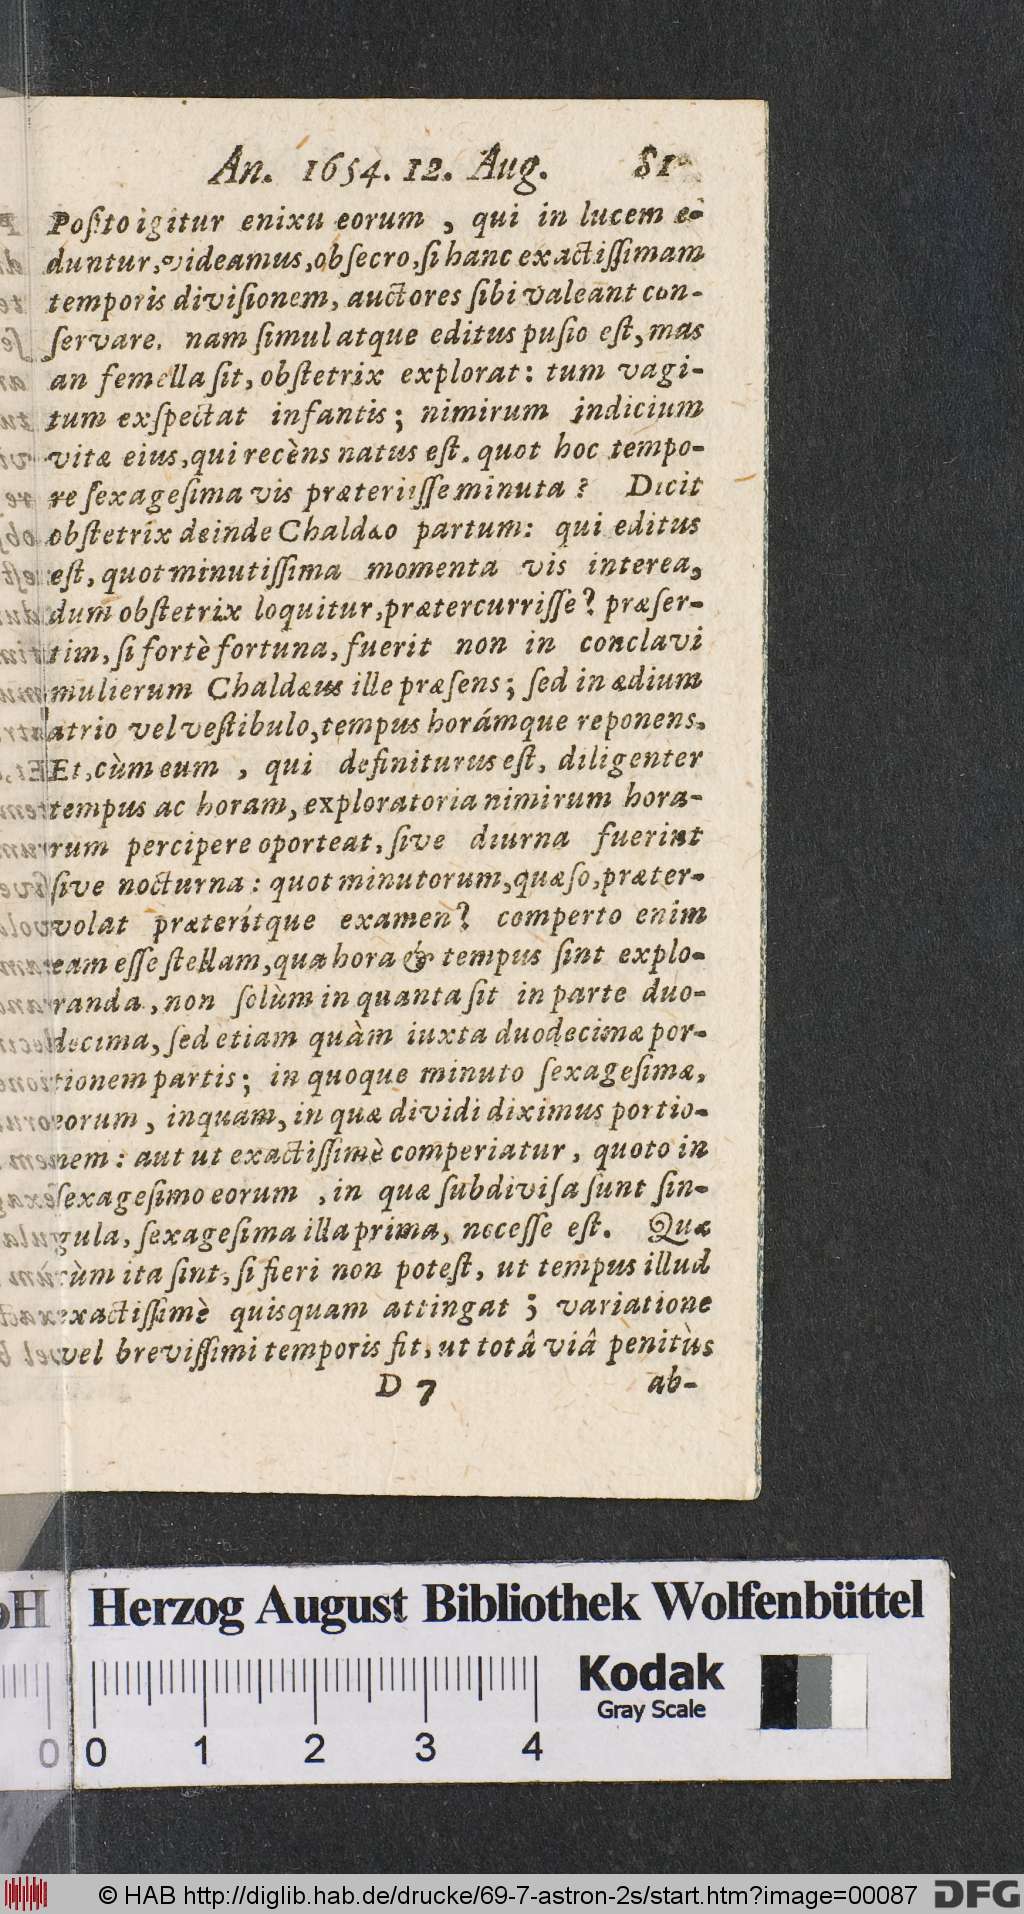 An. 1654. 12. Aug. 81
Poſito igitur enixu eorum , qui in lucem e-
duntur, videamus, obſecro, ſi hanc exactiſſimam
temporis diviſionem, auctores ſibi valeant con-
ſervare. nam ſimul atque editus puſio eſt, mas
an femella ſit, obſtetrix explorat: tum vagi-
tum exſpectat infantis; nimirum indicium
vitæ eius, qui recèns natus eſt. quot hoc tempo-
re ſexageſima vis præteriiſſe minuta? Dicit
obſtetrix deinde Chaldæo partum: qui editus
eſt, quot minutiſſima momenta vis interea,
dum obſtetrix loquitur, prætercurriſſe? præſer-
tim, ſi fortè fortuna, fuerit non in conclavi
mulierum Chaldæus ille præſens; ſed in ædium
atrio vel veſtibulo, tempus horámque reponens.
Et, cùm eum , qui definiturus eſt, diligenter
tempus ac horam, exploratoria nimirum hora-
rum percipere oporteat, ſive diurna fuerint
ſive nocturna: quot minutorum, quæſo, præter-
volat præterítque examen? comperto enim
eam eſſe ſtellam, qua hora & tempus ſint explo-
randa, non ſolùm in quanta ſit in parte duo-
decima, ſed etiam quàm iuxta duodecimæ por-
tionem partis; in quoque minuto ſexageſimæ,
eorum, inquam, in quæ dividi diximus portio-
nem: aut ut exactiſſimè comperiatur, quoto in
ſexageſimo eorum , in quæ ſubdiviſa ſunt ſin-
gula, ſexageſima illa prima, neceſſe eſt. Quæ
cùm ita ſint, ſi fieri non poteſt, ut tempus illud
exactiſſimè quisquam attingat; variatione
vel breviſſimi temporis fit, ut totâ viâ penitùs
D 7 ab-
Herzog August Bibliothek Wolfenbüttel
Kodak
Gray Scale
0 0 1 2 3 4
© HAB http://diglib.hab.de/drucke/69-7-astron-2s/start.htm?image=00087 DFG